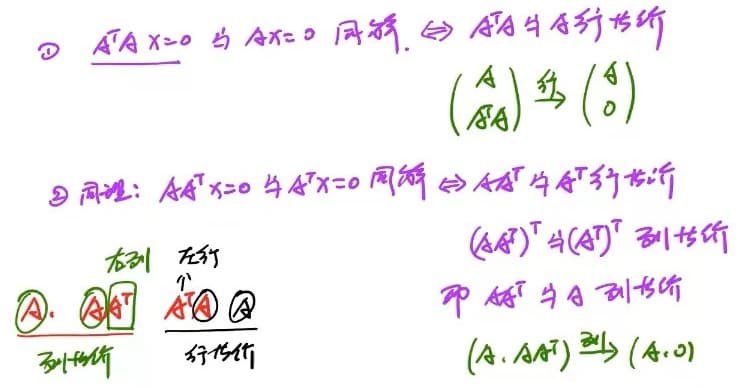 ① AᵀA x=0 与 Ax=0 同解. ⇔ AᵀA 与 A 行等价
(A
AᵀA) 行→ (A
0)
② 同理: AAᵀx=0 与 Aᵀx=0 同解 ⇔ AAᵀ 与 Aᵀ 行等价
(AAᵀ)ᵀ 与 (Aᵀ)ᵀ 列等价
即 AAᵀ 与 A 列等价
(A. AAᵀ) 列→ (A.0)
右列 左行
A. AAᵀ AᵀA A
列等价 行等价